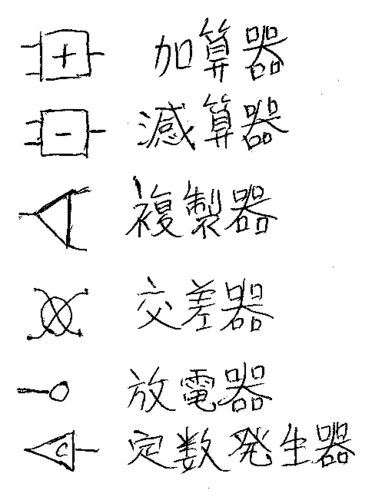 + 加算器
- 減算器
複製器
交差器
放電器
C 定数発生器